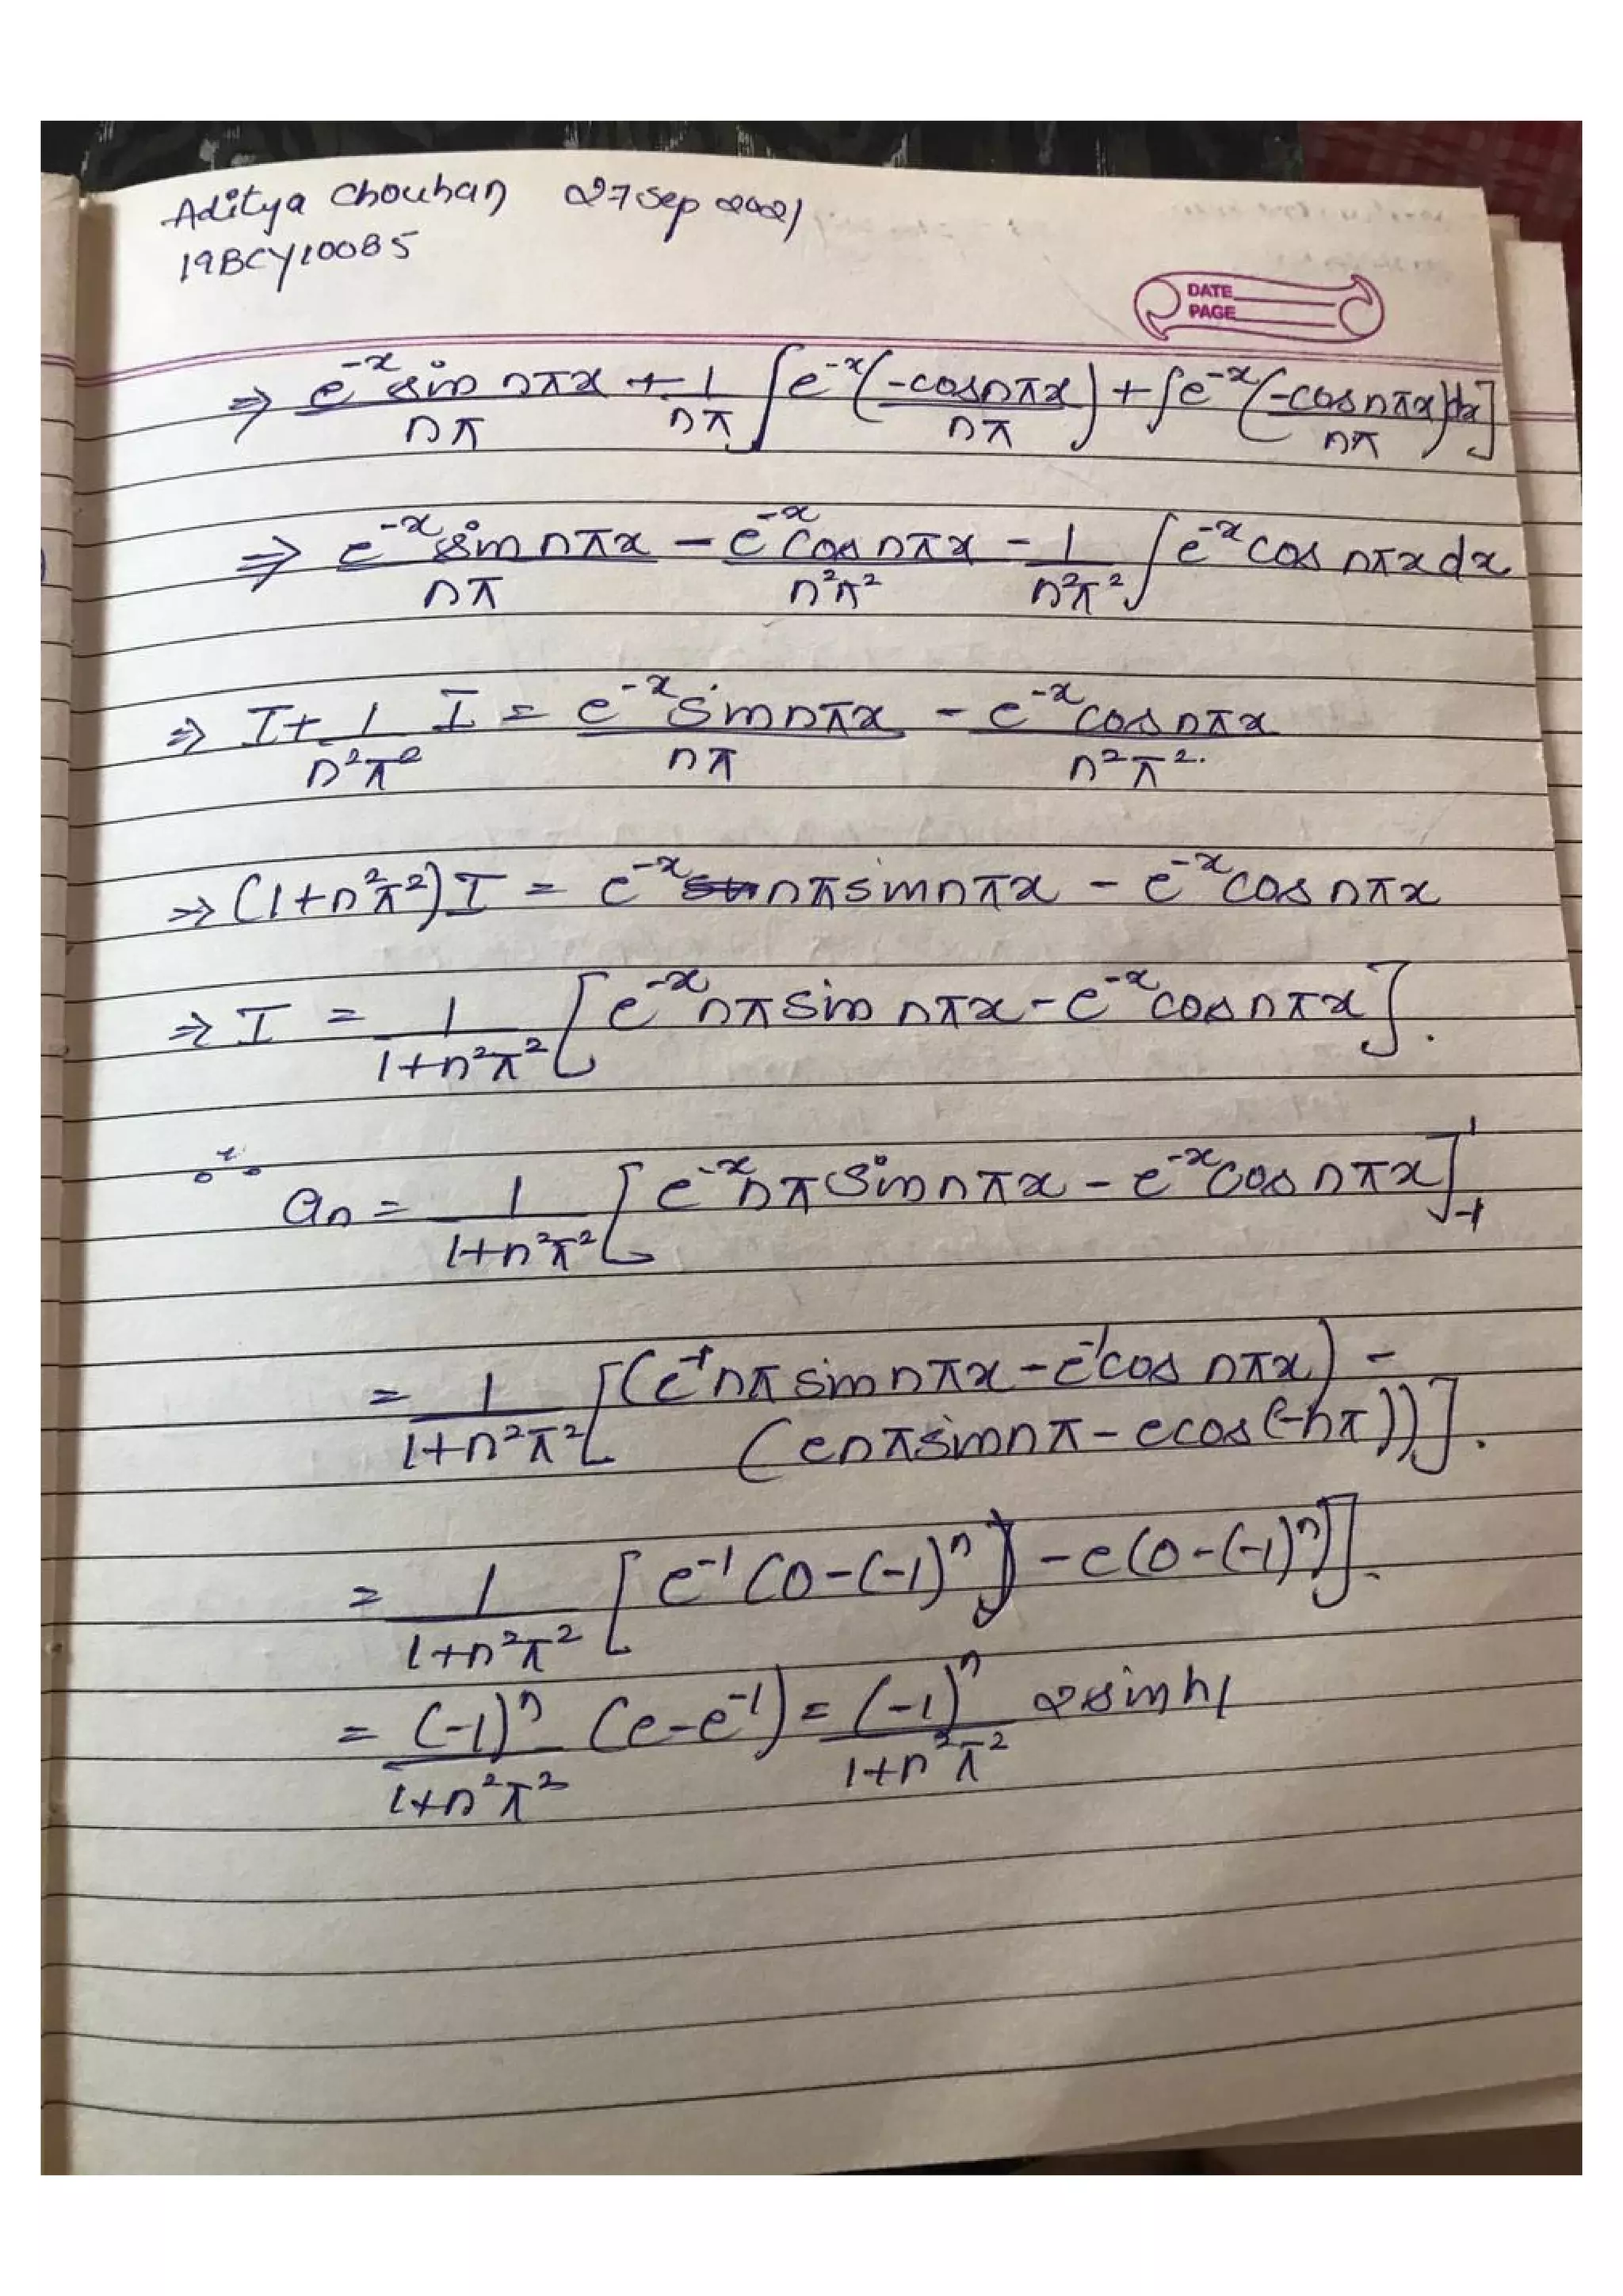 Aditya Chouhan 27 Sep 2021
19BCY10085
DATE
PAGE
⇒ e^-x sin nπx / nπ + 1/nπ [e^-x (-cos nπx / nπ) + ∫e^-x (-cos nπx / nπ) dx]
⇒ e^-x sin nπx / nπ - e^-x cos nπx / n²π² - 1/n²π² ∫e^-x cos nπx dx
⇒ I + 1/n²π² I = e^-x sin nπx / nπ - e^-x cos nπx / n²π².
⇒ (1+n²π²) I = e^-x nπ sin nπx - e^-x cos nπx
⇒ I = 1/1+n²π² [e^-x nπ sin nπx - e^-x cos nπx].
∴ an = 1/1+n²π² [e^-x nπ sin nπx - e^-x cos nπx]^1_-1
= 1/1+n²π² [(e^-1 nπ sin nπx - e^-1 cos nπx) -
(e nπ sin nπ - e cos(-nπ))].
= 1/1+n²π² [e^-1 (0-(-1)^n) - e(0-(-1)^n)].
= (-1)^n/1+n²π² (e-e^-1) = (-1)^n/1+n²π² 2 sin h1